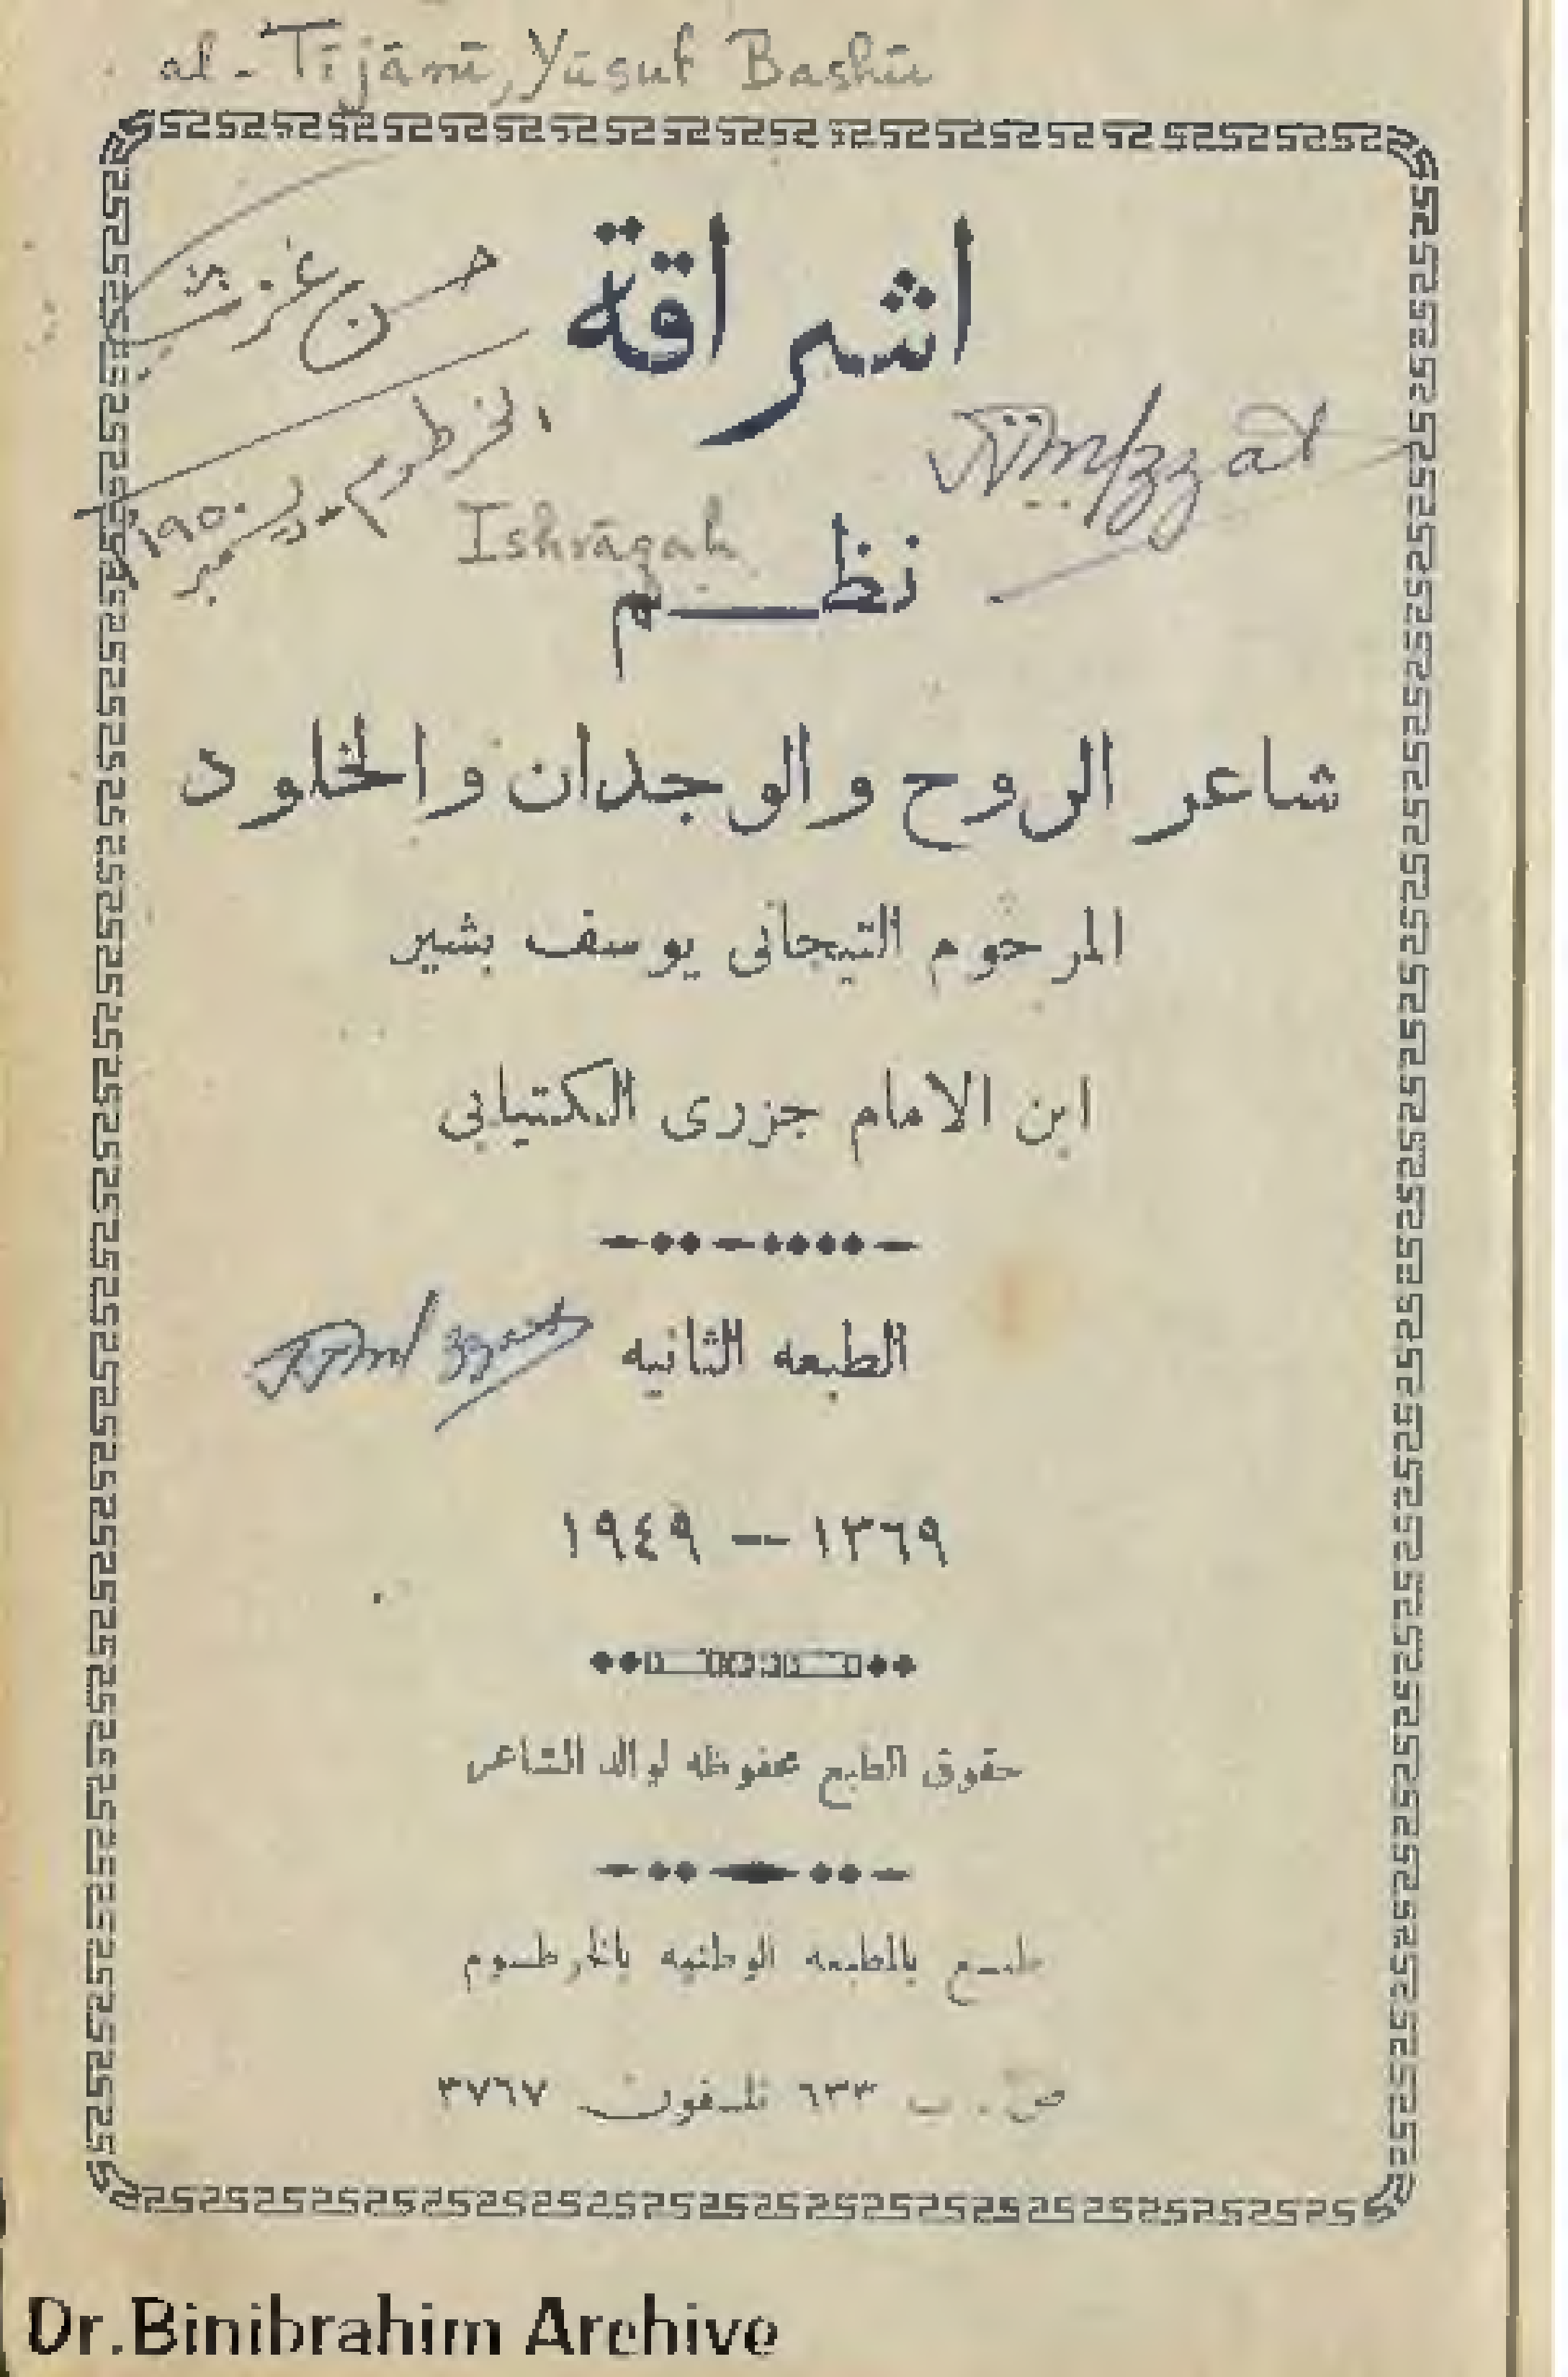 al-Tījānī, Yūsuf Bashīr
اشراقة
حسن عزت
الخرطوم - ديسمبر ١٩٥٠
Ishrāqah
نظـــم
شاعر الروح والوجدان والخلود
المرحوم التيجانى يوسف بشير
ابن الامام جزرى الكتيابى
الطبعه الثانيه
١٣٦٩ — ١٩٤٩
حقوق الطبع محفوظه لوالد الشاعر
طبــع بالمطبعه الوطنيه بالخرطــوم
ص . ب ٦٣٣ تلــفون ٣٧٦٧
Dr.Binibrahim Archive